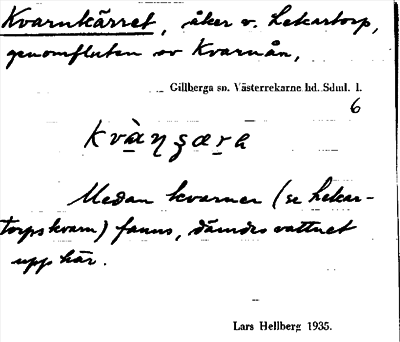 Kvarnkärret, åker v. Lekartorp,
genomfluten av Kvarnån.
Gillberga sn. Västerrekarne hd. Sdml. l.
6
Medan kvarnen (se Lekar-
torps kvarn) fanns, dämdes vattnet
upp här.
Lars Hellberg 1935.